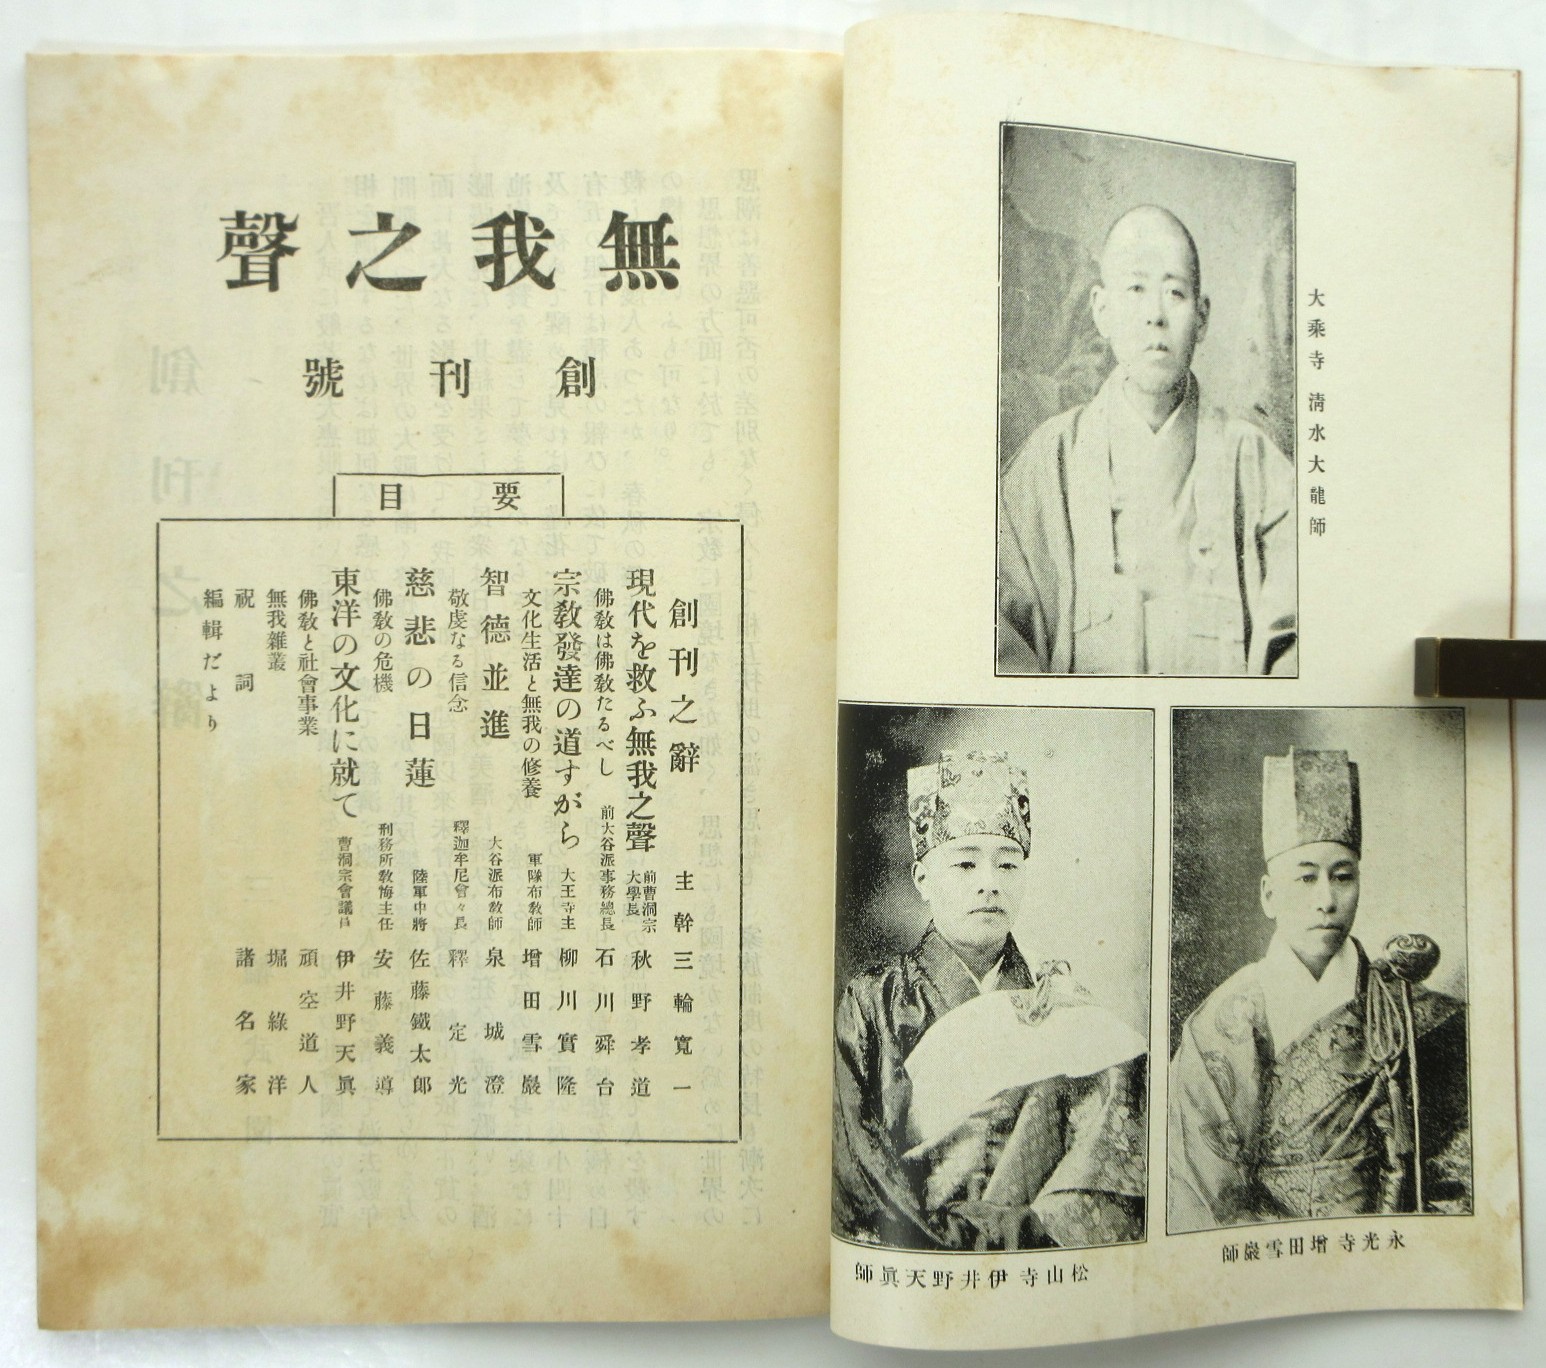 大乘寺 淸水大龍師
永光寺 增田雪巖師
松山寺 伊井野天眞師
無我之聲
創刊號
要目
創刊之辭 主幹 三輪寬一
現代を救ふ無我之聲 前曹洞宗大學長 秋野孝道
佛敎は佛敎たるべし 前大谷派事務總長 石川舜台
宗敎發達の道すがら 大王寺主 柳川實隆
文化生活と無我の修養 軍隊布敎師 增田雪巖
智德並進 大谷派布敎師 泉城澄
敬虔なる信念 釋迦牟尼會々長 釋定光
慈悲の日蓮 陸軍中將 佐藤鐵太郎
佛敎の危機 刑務所敎悔主任 安藤義導
東洋の文化に就て 曹洞宗會議員 伊井野天眞
佛敎と社會事業 頑空道人
無我雜叢 堀綠洋
祝詞 諸名家
編輯だより